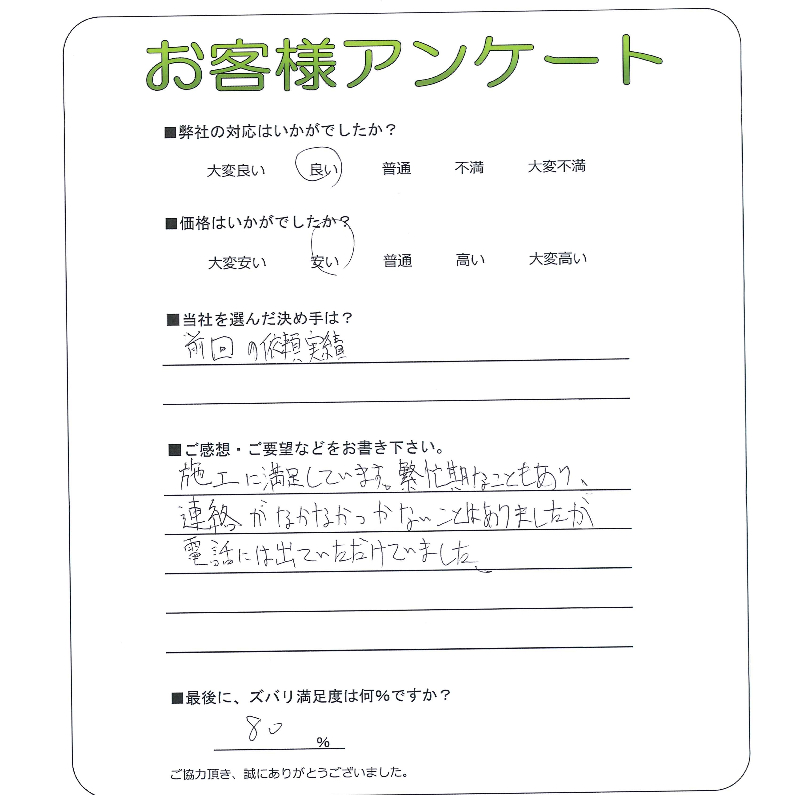 お客様アンケート
■弊社の対応はいかがでしたか？
大変良い 良い 普通 不満 大変不満
■価格はいかがでしたか？
大変安い 安い 普通 高い 大変高い
■当社を選んだ決め手は？
前回の依頼実績
■ご感想・ご要望などをお書き下さい。
施工に満足しています。繁忙期なこともあり、
連絡がなかなかつかないことはありましたが
電話には出ていただけていました。
■最後に、ズバリ満足度は何%ですか？
80 %
ご協力頂き、誠にありがとうございました。